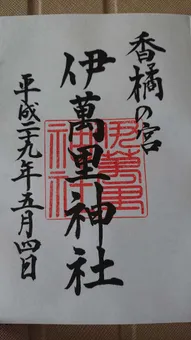 香橘の宮
伊萬里神社
伊萬里
神社
平成二九年五月四日